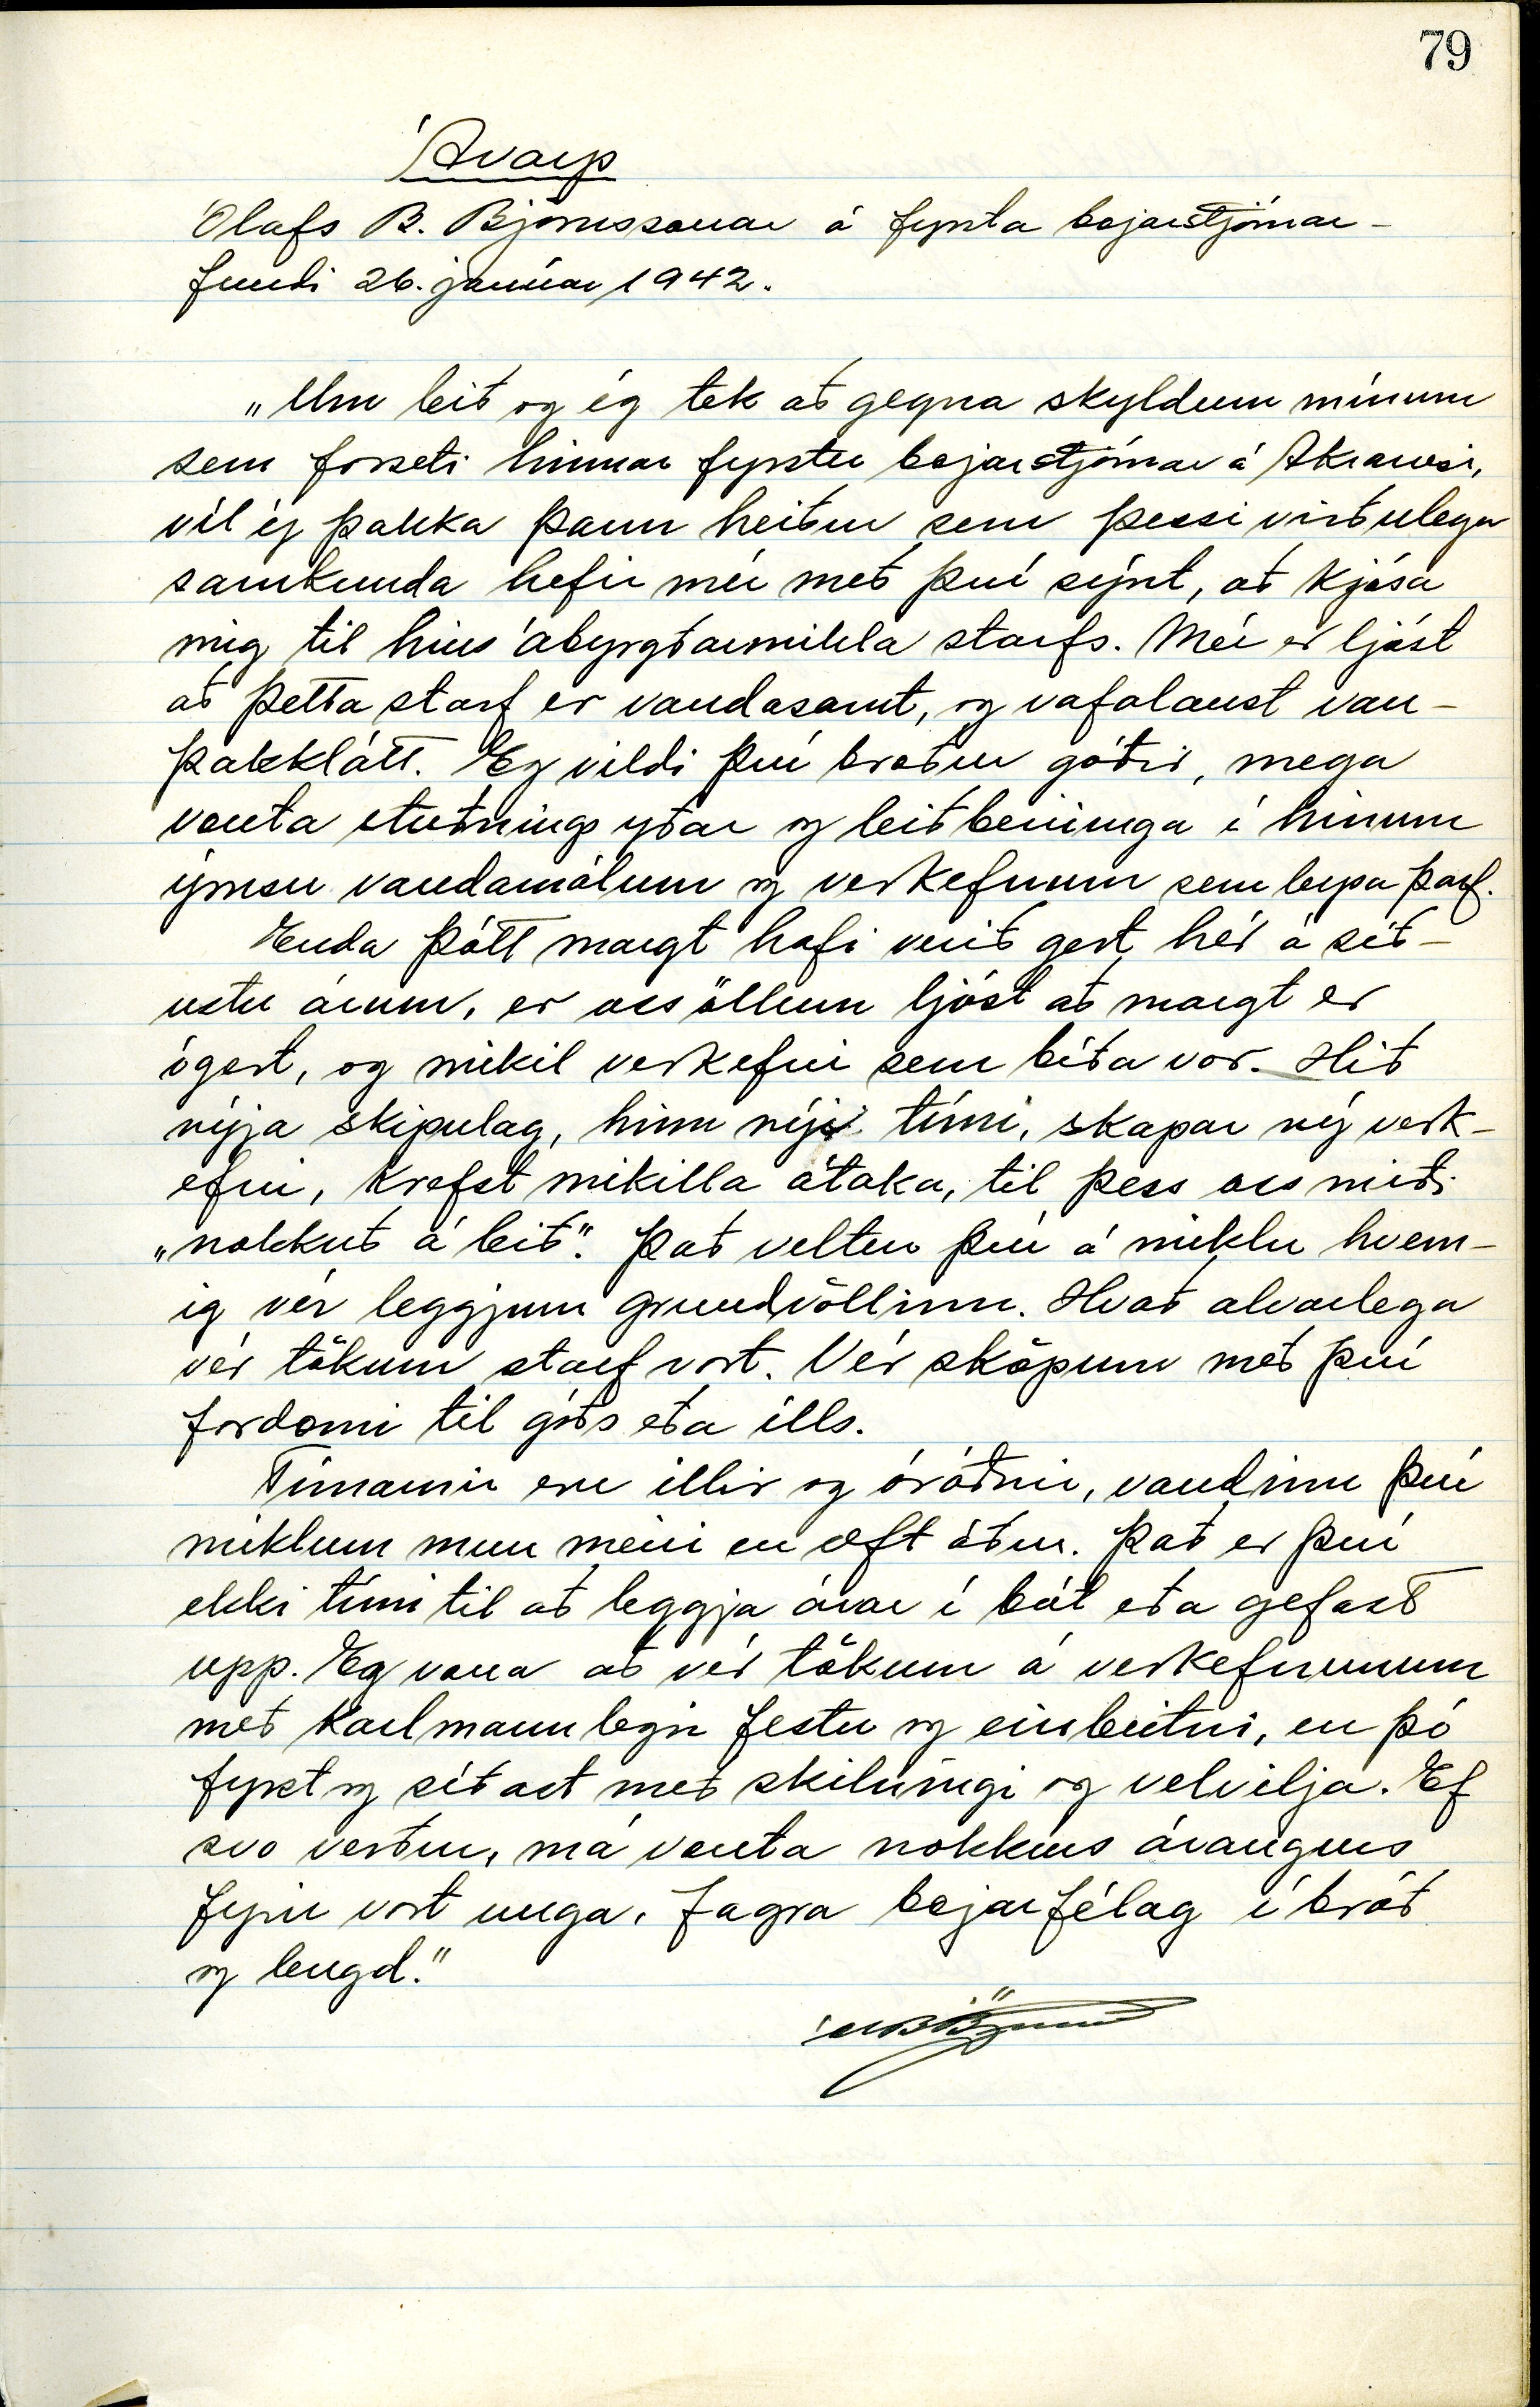 79
Ávarp
Ólafs B. Björnssonar á fyrsta bæjarstjórnar-
fundi 26. janúar 1942.
„Um leið og ég tek að gegna skyldum mínum
sem forseti hinnar fyrstu bæjarstjórnar á Akranesi,
vil ég þakka þann heiður sem þessi virðulega
samkunda hefir mér með því sýnt, að kjósa
mig til hins ábyrgðarmikla starfs. Mér er ljóst
að þetta starf er vandasamt, og vafalaust van-
þakklátt. Eg vildi því bræður góðir, mega
vænta stuðnings yðar og leiðbeininga í hinum
ýmsu vandamálum og verkefnum sem leysa þarf.
Enda þótt margt hafi verið gert hér á síð-
ustu árum, er oss öllum ljóst að margt er
ógert, og mikil verkefni sem bíða vor. Hið
nýja skipulag, hinn nýji tími, skapar ný verk-
efni, krefst mikilla átaka, til þess oss miði
„nokkuð á leið“. Það veltur því á miklu hvern-
ig vér leggjum grundvöllinn. Hvað alvarlega
vér tökum starf vort. Vér sköpum með því
fordæmi til góðs eða ills.
Tímarnir eru illir og óráðnir, vandinn því
miklum mun meiri en oft áður. Það er því
ekki tími til að leggja árar í bát eða gefast
upp. Eg vona að vér tökum á verkefnunum
með karlmannlegri festu og einbeitni, en þó
fyrst og síðast með skilningi og velvilja. Ef
svo verður, má vænta nokkurs árangurs
fyrir vort unga, fagra bæjarfélag í bráð
og lengd.“
Ól. B. Björnsson